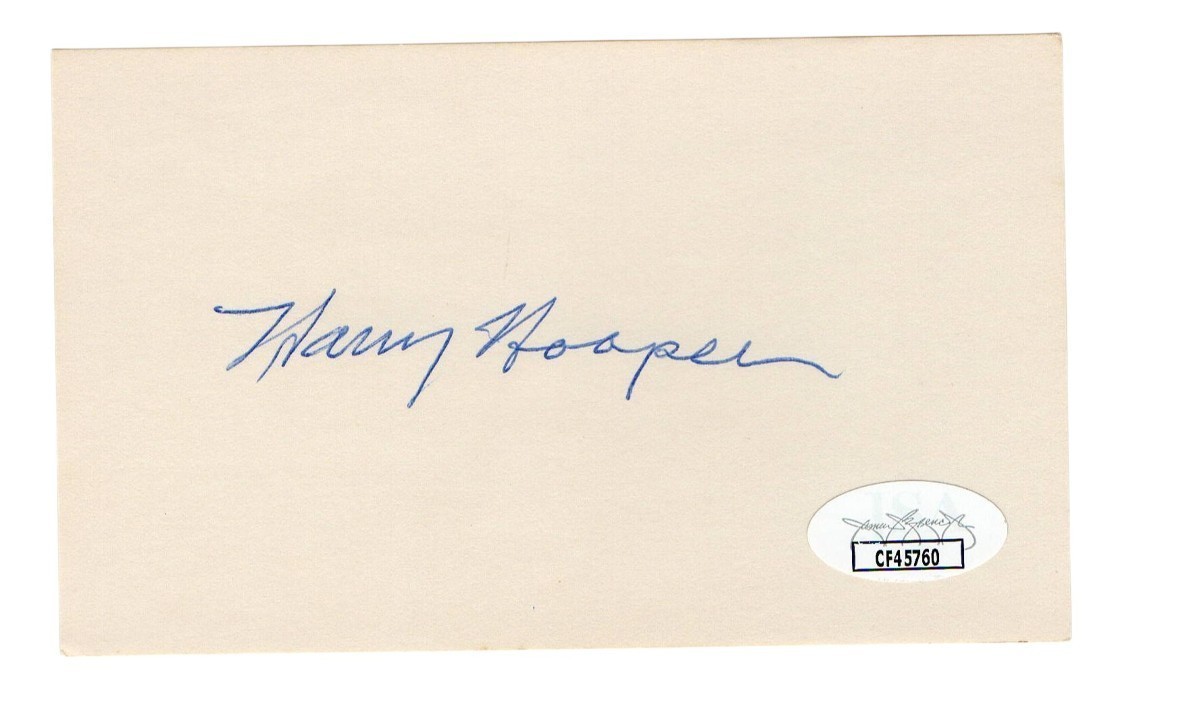 Harry Hooper
James Spence Jr.
CF45760